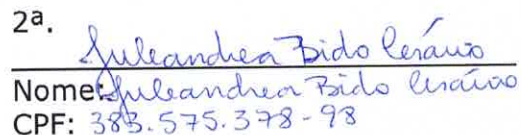 2ª.
Juleandrea Bido Cesário
Nome: Juleandrea Bido Cesário
CPF: 383.575.378-98